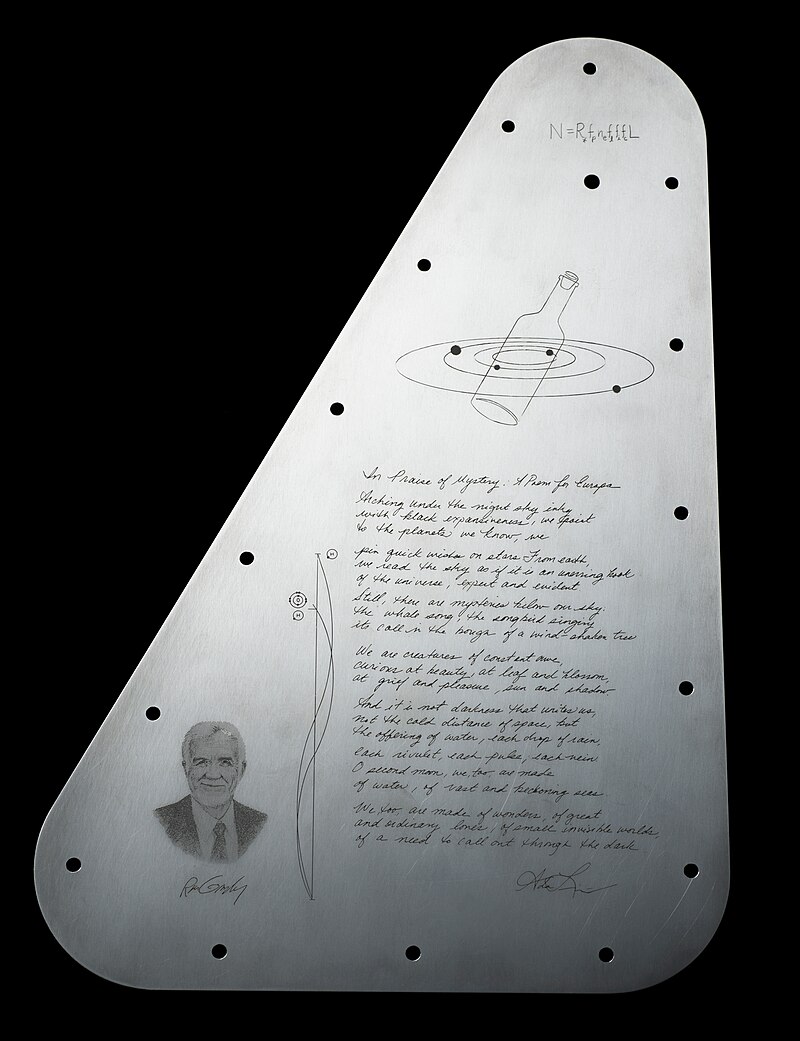 N=R*fpneflfifcL
In Praise of Mystery: A Poem for Europa
Arching under the night sky inky
with black expansiveness, we point
to the planets we know, we
pin quick wishes on stars. From earth,
we read the sky as if it is an unerring book
of the universe, expert and evident.
Still, there are mysteries below our sky:
the whale song, the songbird singing
its call in the bough of a wind-shaken tree
We are creatures of constant awe,
curious at beauty, at leaf and blossom,
at grief and pleasure, sun and shadow
And it is not darkness that unites us,
not the cold distance of space, but
the offering of water, each drop of rain,
each rivulet, each pulse, each vein
O second moon, we, too, are made
of water, of vast and beckoning seas
We, too, are made of wonders, of great
and ordinary loves, of small invisible worlds,
of a need to call out through the dark
H
O
H
Ron Greeley
Ada Limón